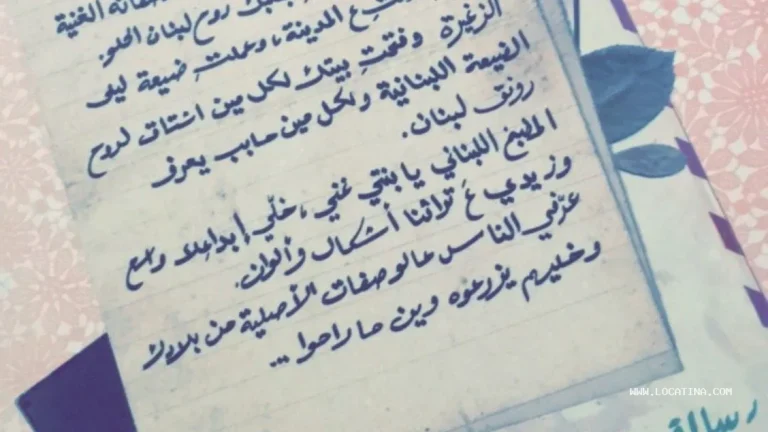 روح لبنان الحلو.
ع المدينة، وعملتِ ضيعة ليلى
الزغيرة وفتحتِ بيتك لكل مين اشتاق لروح
الضيعة اللبنانية ولكل مين حابب يعرف
رونق لبنان.
المطبخ اللبناني يا بنتي غني، خلّي إبداعك وسع
وزيدي عَ تراثنا أشكال وألوان.
عرّفي الناس عالوصفات الأصلية من بلادك
وخليهم يزرعوه وين ما راحوا ...
WWW.LOCATINA.COM
رسالة